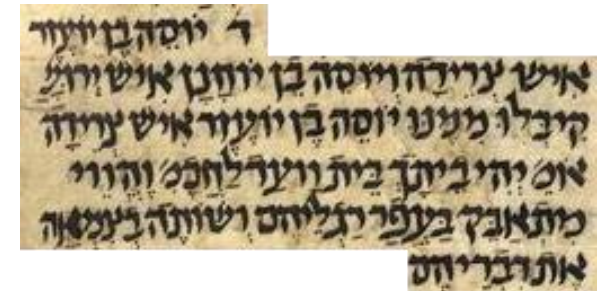 ד יוסה בן יועזר
איש צרידה ויוסה בן יוחנן איש ירוש'
קיבלו ממנו יוסה בן יועזר איש צרידה
אומ' יהי ביתך בית ווער לחכמ' והווי
מתאבק בעפר רגליהם ושותה בצמאה
את דבריהם